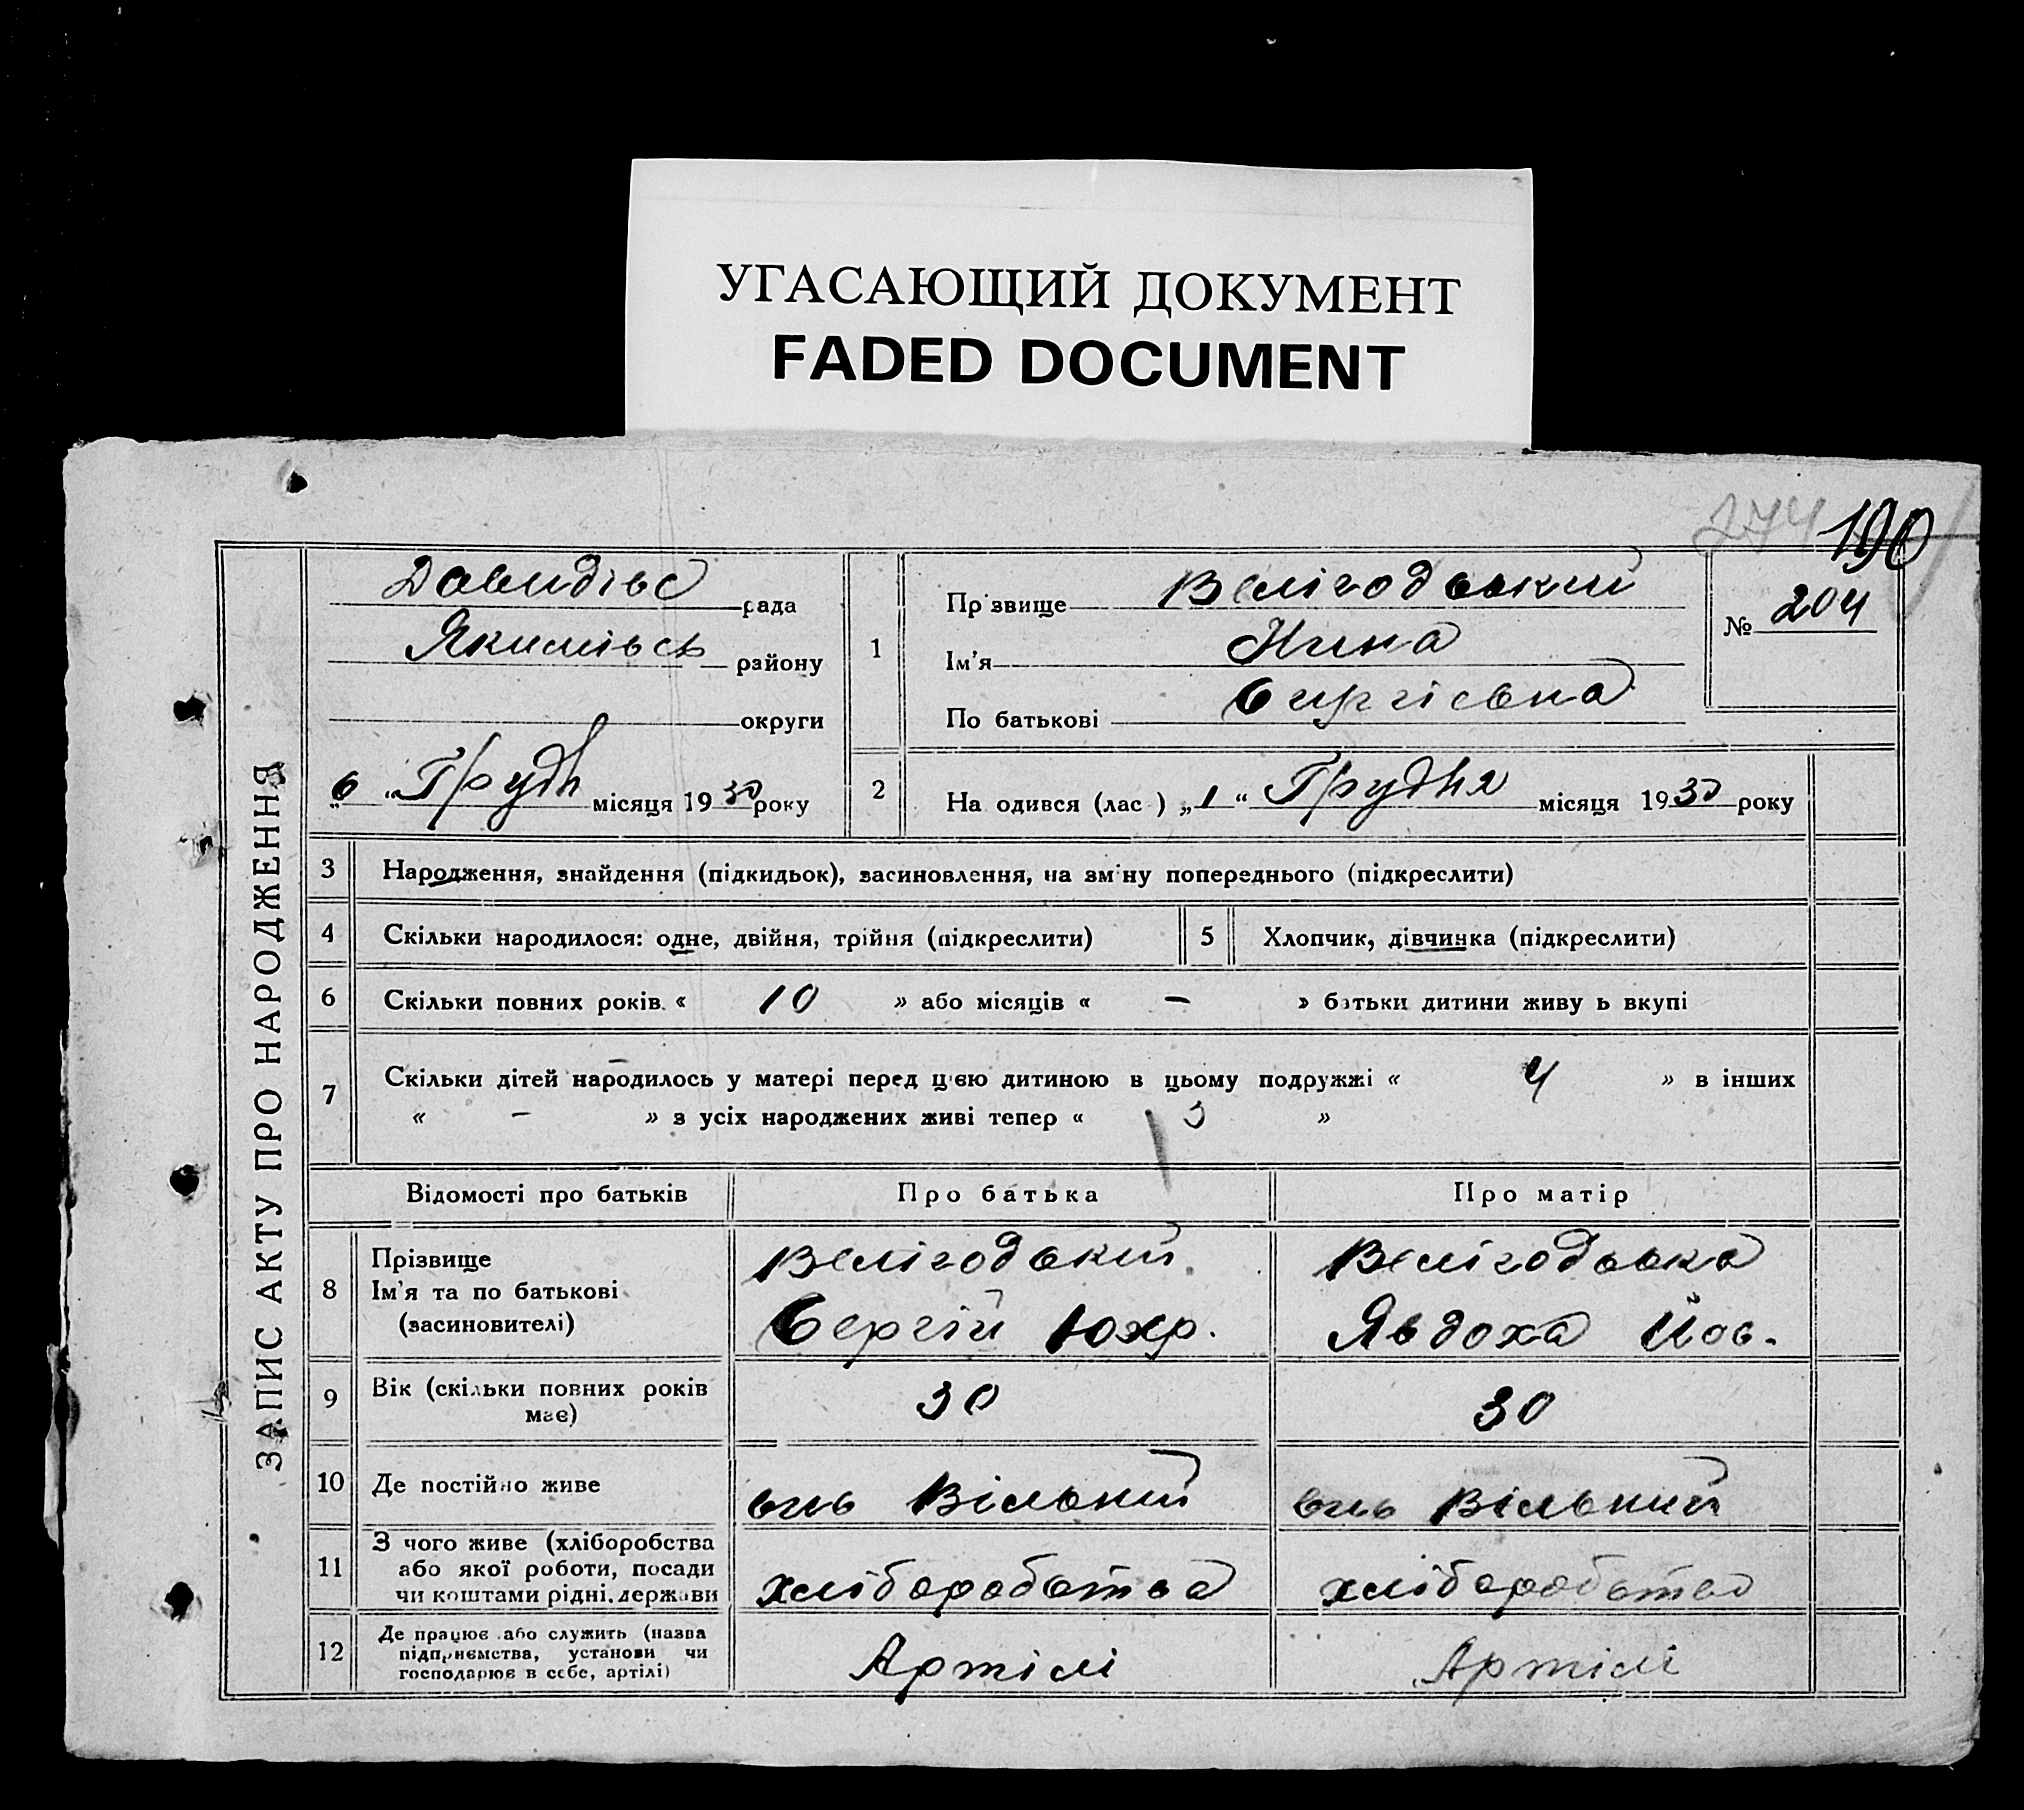 УГАСАЮЩИЙ ДОКУМЕНТ
FADED DOCUMENT
274 190
ЗАПИС АКТУ ПРО НАРОДЖЕННЯ
Давидівс рада
Якимівсь району
округи
„6“ Грудн місяця 1930 року
1
Прізвище Велігодський
Ім'я Нина
По батькові Сергієвна
№ 204
2
На одився (лас ) „1“ Грудня місяця 1930 року
3 Народження, знайдення (підкидьок), засиновлення, на зміну попереднього (підкреслити)
4 Скільки народилося: одне, двійня, трійня (підкреслити) 5 Хлопчик, дівчинка (підкреслити)
6 Скільки повних років « 10 » або місяців « – » батьки дитини живу ь вкупі
7 Скільки дітей народилось у матері перед цією дитиною в цьому подружжі « 4 » в інших
« – » з усіх народжених живі тепер « 3 »
Відомості про батьків Про батька Про матір
8 Прізвище
Ім'я та по батькові
(засиновителі)
Велігодський
Сергій Юхр.
Велігодська
Явдоха Йос.
9 Вік (скільки повних років
має)
30 30
10 Де постійно живе Вільний Вільний
11 З чого живе (хліборобства
або якої роботи, посади
чи коштами рідні. держави
хліборобства хліборобства
12 Де працює або служить (назва
підприємства, установи чи
господарює в себе, артілі)
Артілі Артілі